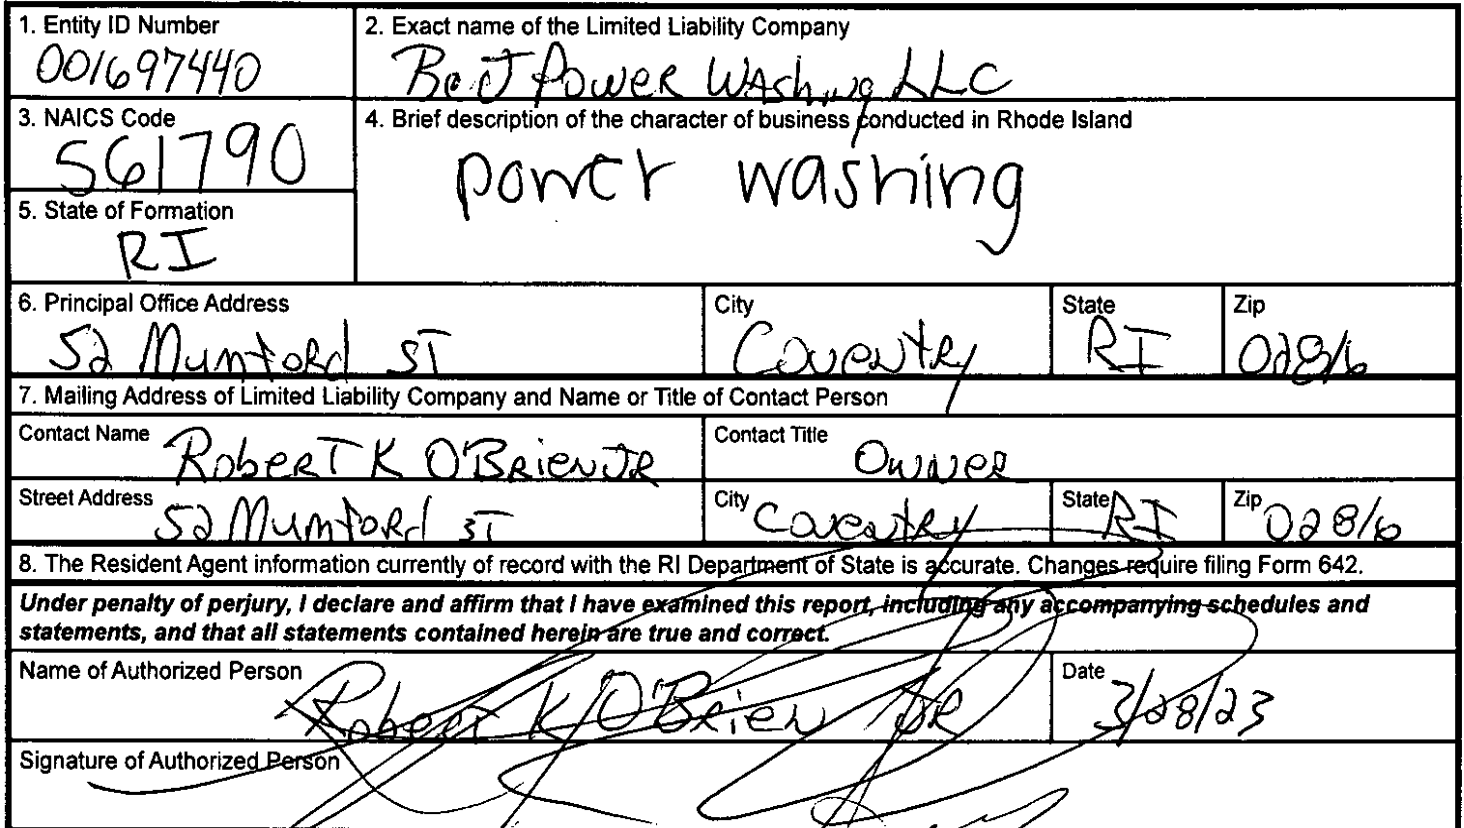 1. Entity ID Number
001697440
2. Exact name of the Limited Liability Company
Power Washing LLC
3. NAICS Code
561790
4. Brief description of the character of business conducted in Rhode Island
power washing
5. State of Formation
RI
6. Principal Office Address
52 Mumford ST
City
Coventry
State
RI
Zip
02816
7. Mailing Address of Limited Liability Company and Name or Title of Contact Person
Contact Name
Robert K O'Brien JR
Contact Title
Owner
Street Address
52 Mumford ST
City
Coventry
State
RI
Zip
02816
8. The Resident Agent information currently of record with the RI Department of State is accurate. Changes require filing Form 642.
Under penalty of perjury, I declare and affirm that I have examined this report, including any accompanying schedules and
statements, and that all statements contained herein are true and correct.
Name of Authorized Person
Robert K O'Brien JR
Date
3/28/23
Signature of Authorized Person